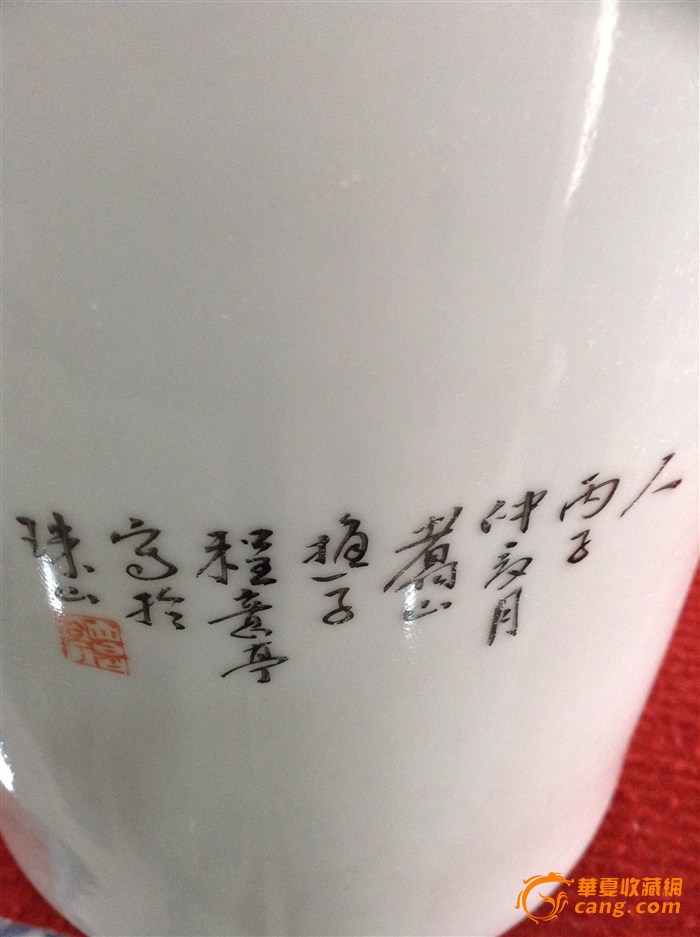 人
丙子
仲夏月
翥山
樵子
程意亭
寫於
珠山
華夏收藏網
cang.com